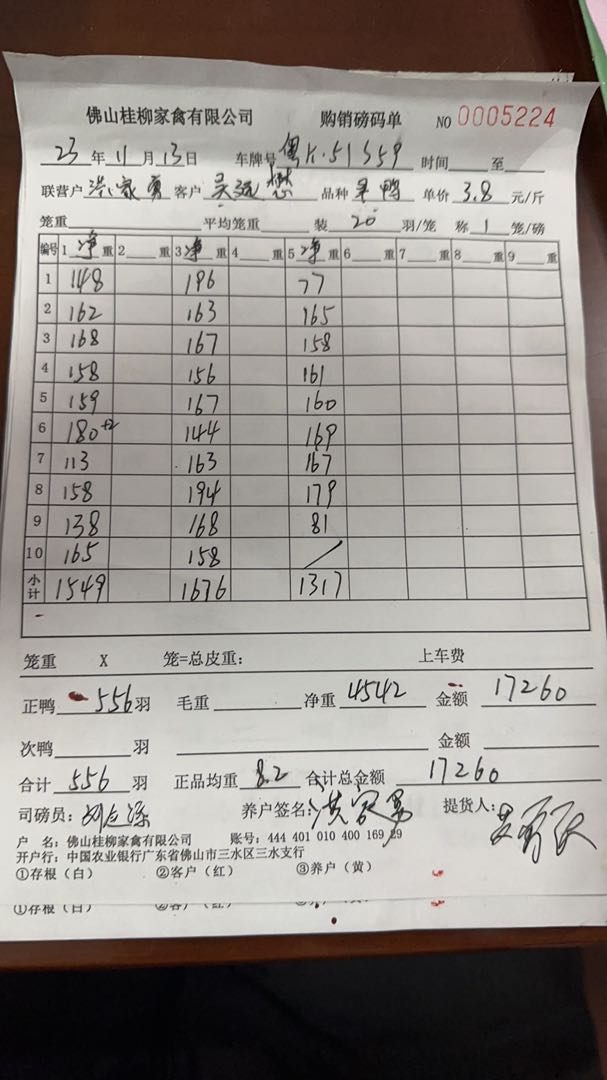 佛山桂柳家禽有限公司 购销磅码单 NO 0005224
23 年 11 月 13 日 车牌号 粤K·51359 时间 至
联营户 洪家勇 客户 品种 鸭 单价 3.8 元/斤
笼重 平均笼重 装 20 羽/笼 称 1 笼/磅
编号 1 净 重 2 重 3 净 重 4 重 5 净 重 6 重 7 重 8 重 9 重
1 148 196 77
2 162 163 165
3 168 167 158
4 158 156 161
5 159 167 160
6 180+2 144 169
7 113 163 167
8 158 194 179
9 138 168 81
10 165 158 /
小计 1549 1676 1317
笼重 X 笼=总皮重: 上车费
正鸭 556 羽 毛重 净重 4542 金额 17260
次鸭 羽 金额
合计 556 羽 正品均重 8.2 合计总金额 17260
司磅员: 养户签名: 洪家勇 提货人:
户 名: 佛山桂柳家禽有限公司 账号: 444 401 010 400 169 29
开户行: 中国农业银行广东省佛山市三水区三水支行
①存根(白) ②客户(红) ③养户(黄)
①存根(白)